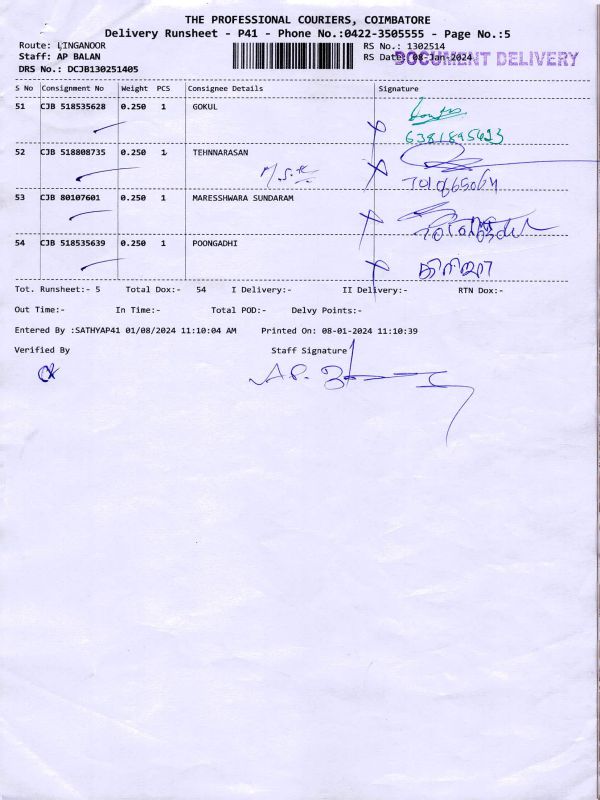 THE PROFESSIONAL COURIERS, COIMBATORE
Delivery Runsheet - P41 - Phone No.:0422-3505555 - Page No.:5
Route: LINGANOOR RS No.: 1302514
Staff: AP BALAN RS Date: 08-Jan-2024 DOCUMENT DELIVERY
DRS No.: DCJB130251405
S No Consignment No Weight PCS Consignee Details Signature
51 CJB 518535628 0.250 1 GOKUL
52 CJB 518808735 0.250 1 TEHNNARASAN
53 CJB 80107601 0.250 1 MARESSHWARA SUNDARAM
54 CJB 518535639 0.250 1 POONGADHI
Tot. Runsheet:- 5 Total Dox:- 54 I Delivery:- II Delivery:- RTN Dox:-
Out Time:- In Time:- Total POD:- Delvy Points:-
Entered By :SATHYAP41 01/08/2024 11:10:04 AM Printed On: 08-01-2024 11:10:39
Verified By Staff Signature